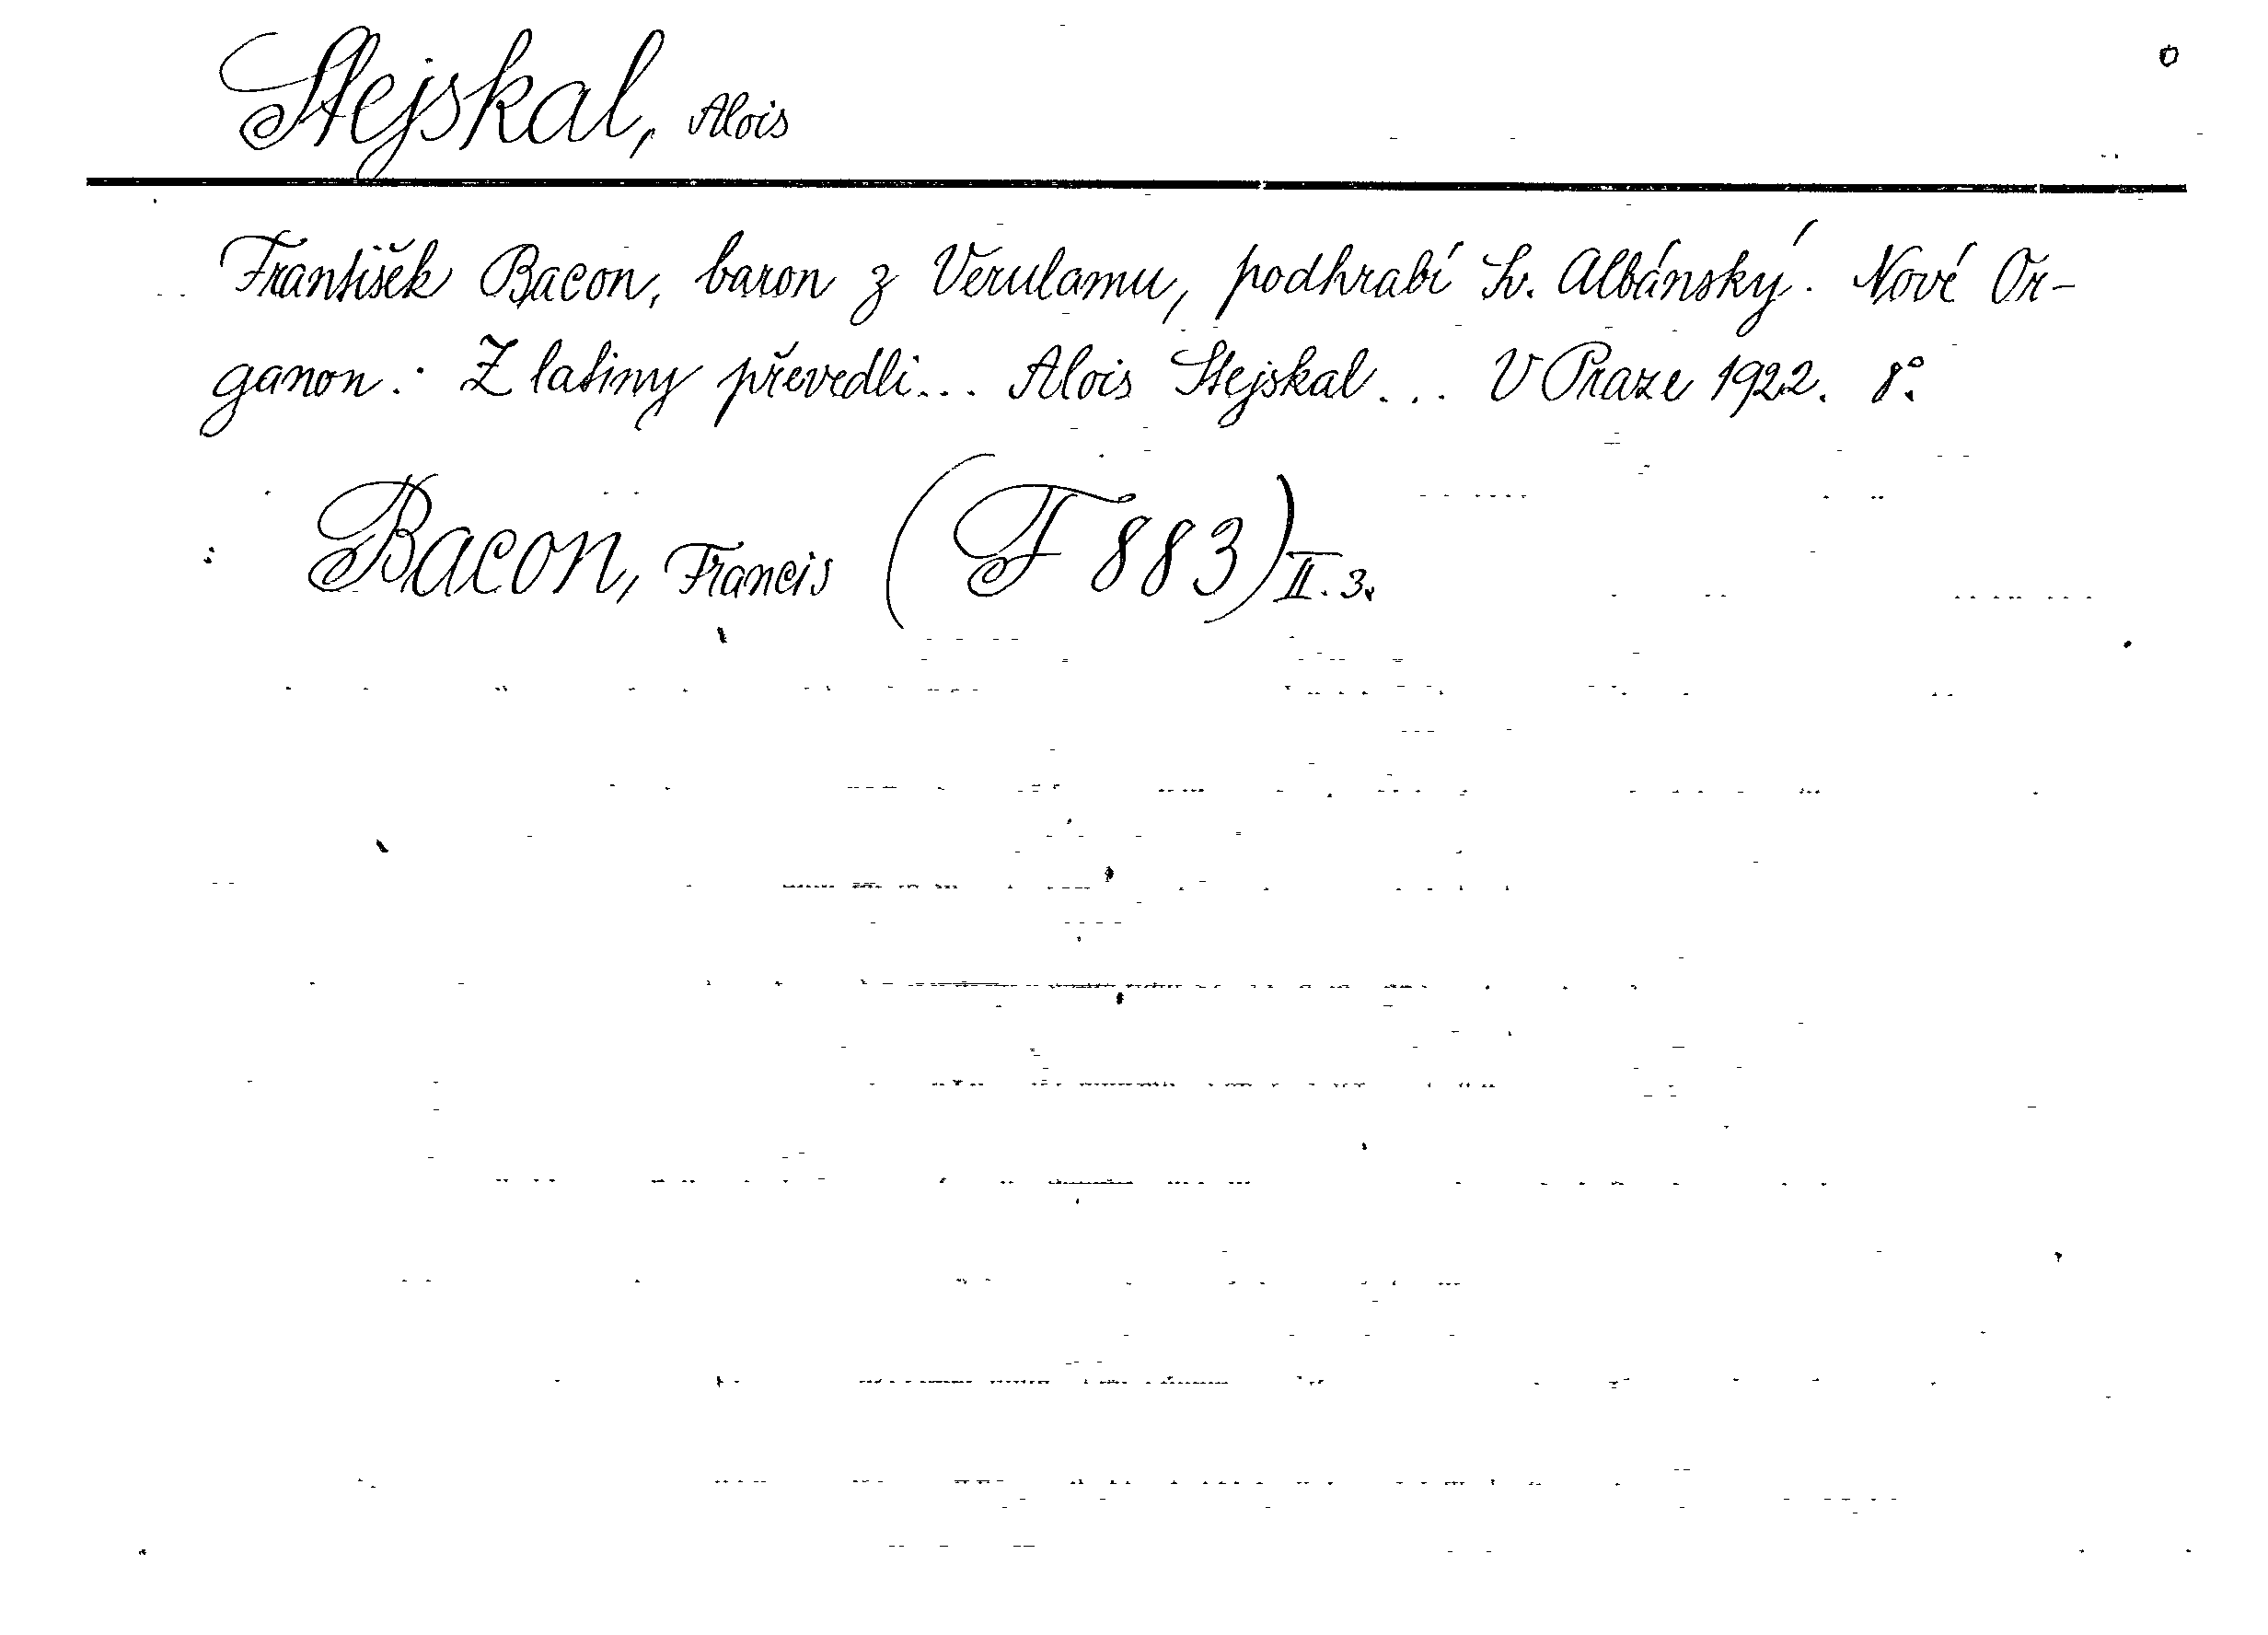 Stejskal, Alois
František Bacon, baron z Verulamu, podhrabí Sv. Albánský. Nové Or-
ganon. Z latiny převedli... Alois Stejskal... V Praze 1922. 8°.
Bacon, Francis (F 883) II. 3.